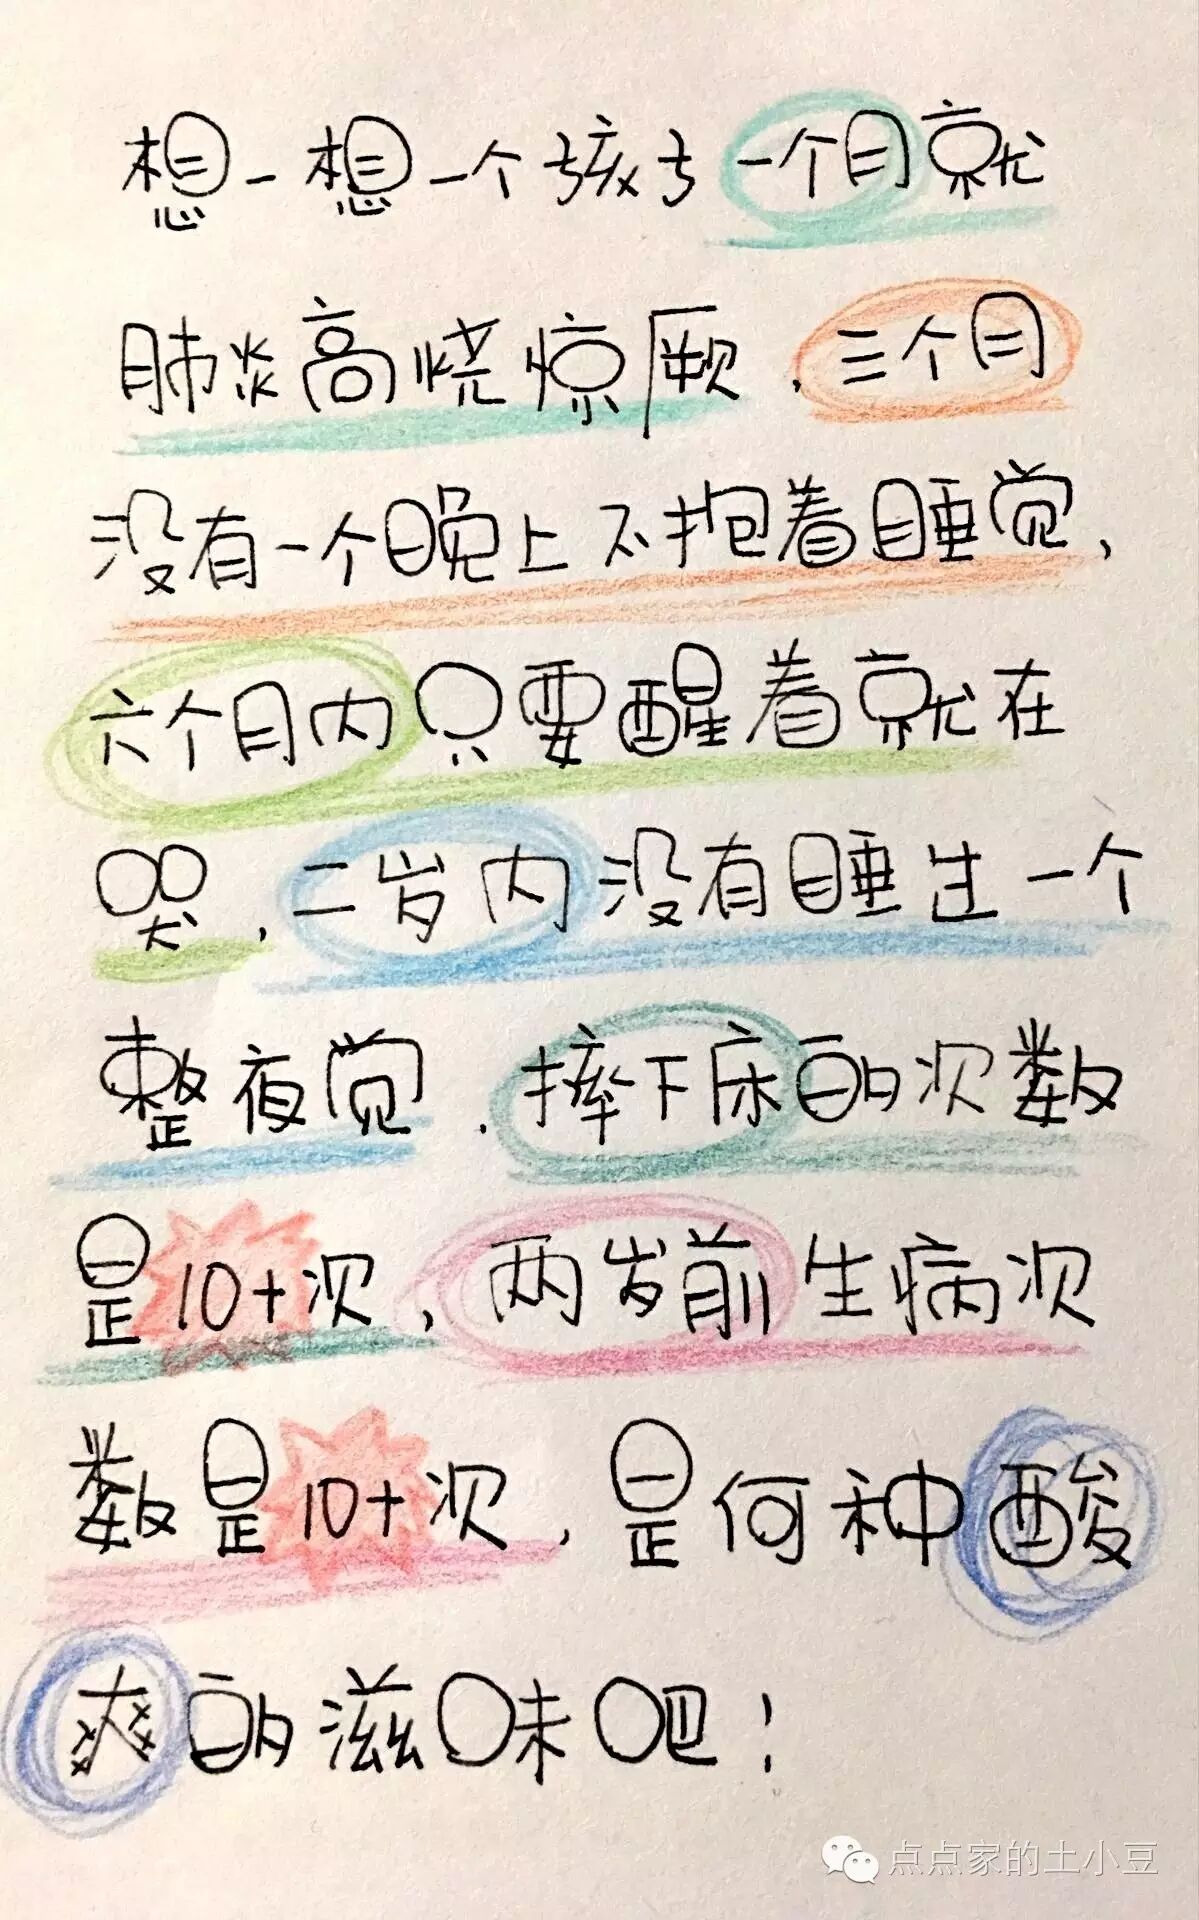 想一想一个孩子一个月就
肺炎高烧惊厥，三个月
没有一个晚上不抱着睡觉，
六个月内只要醒着就在
哭，二岁内没有睡过一个
整夜觉，摔下床的次数
是10+次，两岁前生病次
数是10+次，是何种酸
爽的滋味吧！
点点家的土小豆